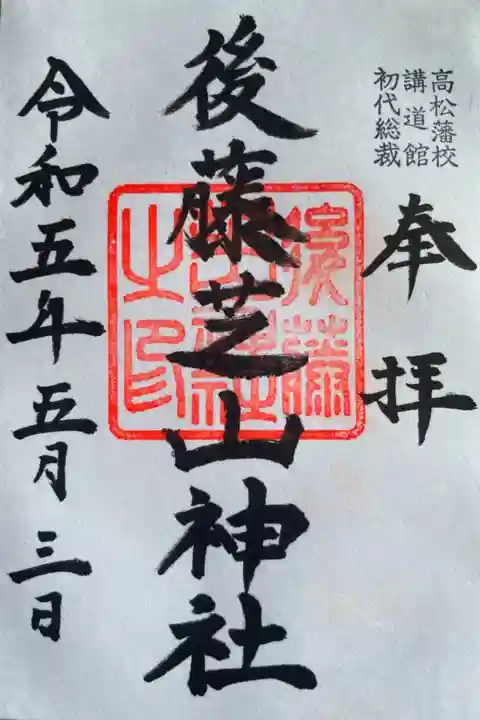 高松藩校
講道館
初代総裁
奉拝
後藤芝山神社
後藤
芝山神社
之印
令和五年五月三日